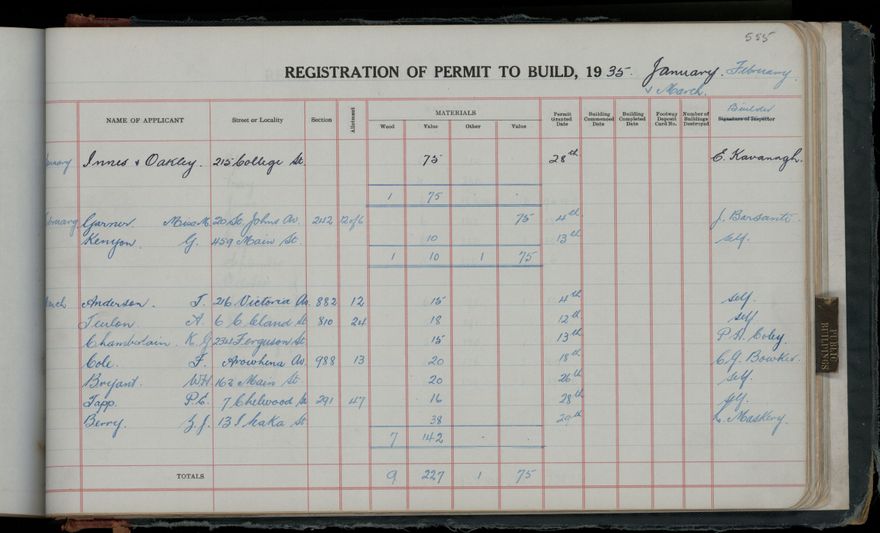 555
REGISTRATION OF PERMIT TO BUILD, 1935. January. February
& March.
NAME OF APPLICANT Street or Locality Section Allotment MATERIALS Wood Value Other Value Permit Granted Date Building Commenced Date Building Completed Date Footway Deposit Card No. Number of Buildings Destroyed Builder Signature of Inspector
Innes & Oakley. 215 College St. 75 28th E. Kavanagh.
1 75 -
Garner Miss M. 20 St Johns Av. 242 12 of 6 75 4th J. Barsanti.
Kenyon G. 459 Main St. 10 13th self.
1 10 1 75
Anderson. T. 216 Victoria Av. 882 12 15 4th self.
A. 6 Cleland St 810 24 18 12th self
Chamberlain. K. G. 234 Ferguson St 15 13th P. H. Coley.
Cole. F. Arowhena Av 988 13 20 18th C. G. Bowker.
Bryant. W.H. 162 Main St 20 26th self.
Tapp. P.C. 7 Chelwood St 291 47 16 28th self.
Berry. 13 St 38 29th L. Maskery.
7 142 - -
TOTALS 9 227 1 75
PUBLIC BUILDINGS